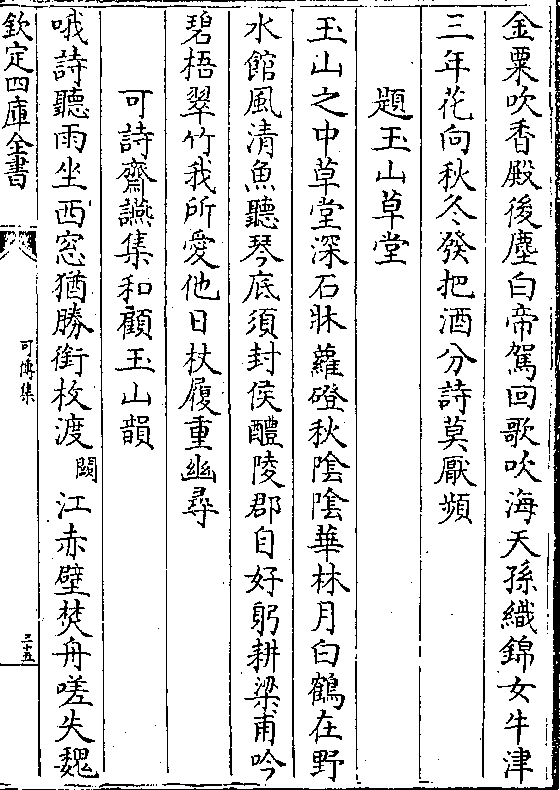 金粟吹香殿後塵白帝駕回歌吹海天孫織錦女牛津
三年花向秋冬發把酒分詩莫厭頻
題玉山草堂
玉山之中草堂深石牀蘿磴秋陰陰華林月白鶴在野
水館風清魚聽琴底須封侯醴陵郡自好躬耕梁甫吟
碧梧翠竹我所愛他日杖履重幽尋
可詩齋讌集和顧玉山韻
哦詩聽雨坐西窓猶勝銜枚渡闕江赤壁焚舟嗟失魏
欽定四庫全書
可傳集
三十五